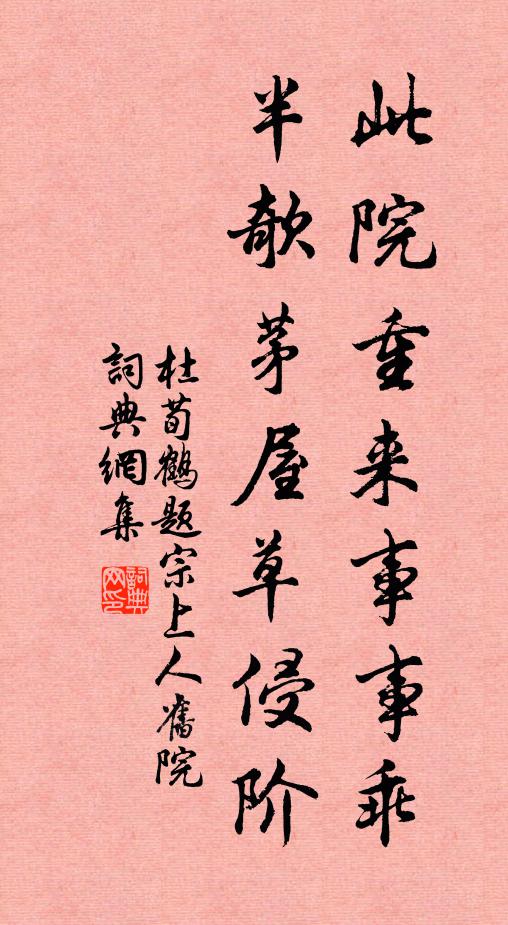 此院重来事事乖
半欹茅屋草侵阶
杜荀鹤题宗上人舊院
詞典網集
詞典网印